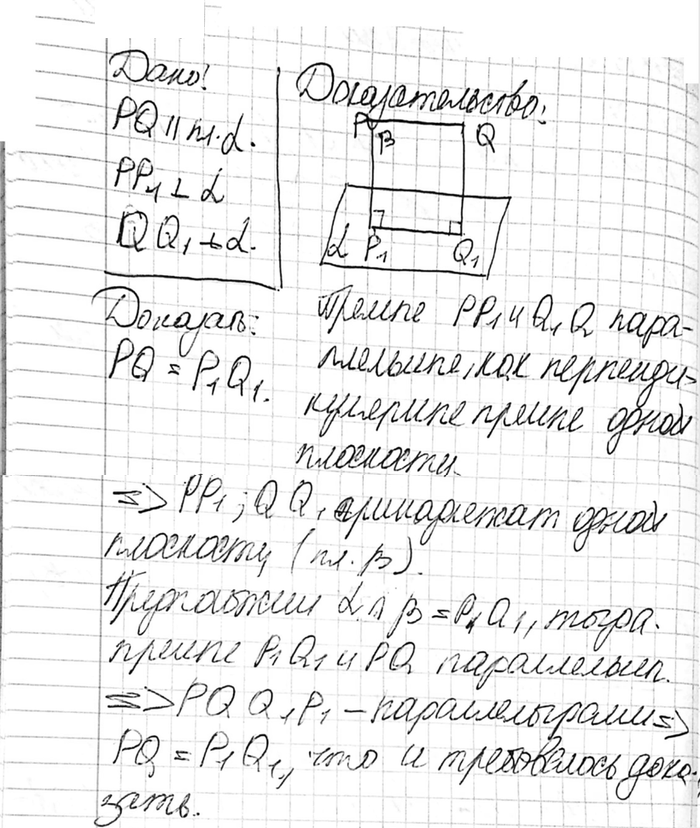 Дано:
PQ || пл. α.
PP₁ ⊥ α
QQ₁ ⊥ α.
Доказать:
PQ = P₁Q₁.
Доказательство:
P
β
Q
α
P₁
Q₁
Прямые PP₁ и Q₁Q пара-
ллельные, как перпенди-
кулярные прямые одной
плоскости.
=> PP₁; QQ₁ принадлежат одной
плоскости (пл. β).
Предположим α ∩ β = P₁Q₁, тогда
прямые P₁Q₁ и PQ параллельны.
=> PQQ₁P₁ – параллелограмм =>
PQ = P₁Q₁, что и требовалось дока-
зать.